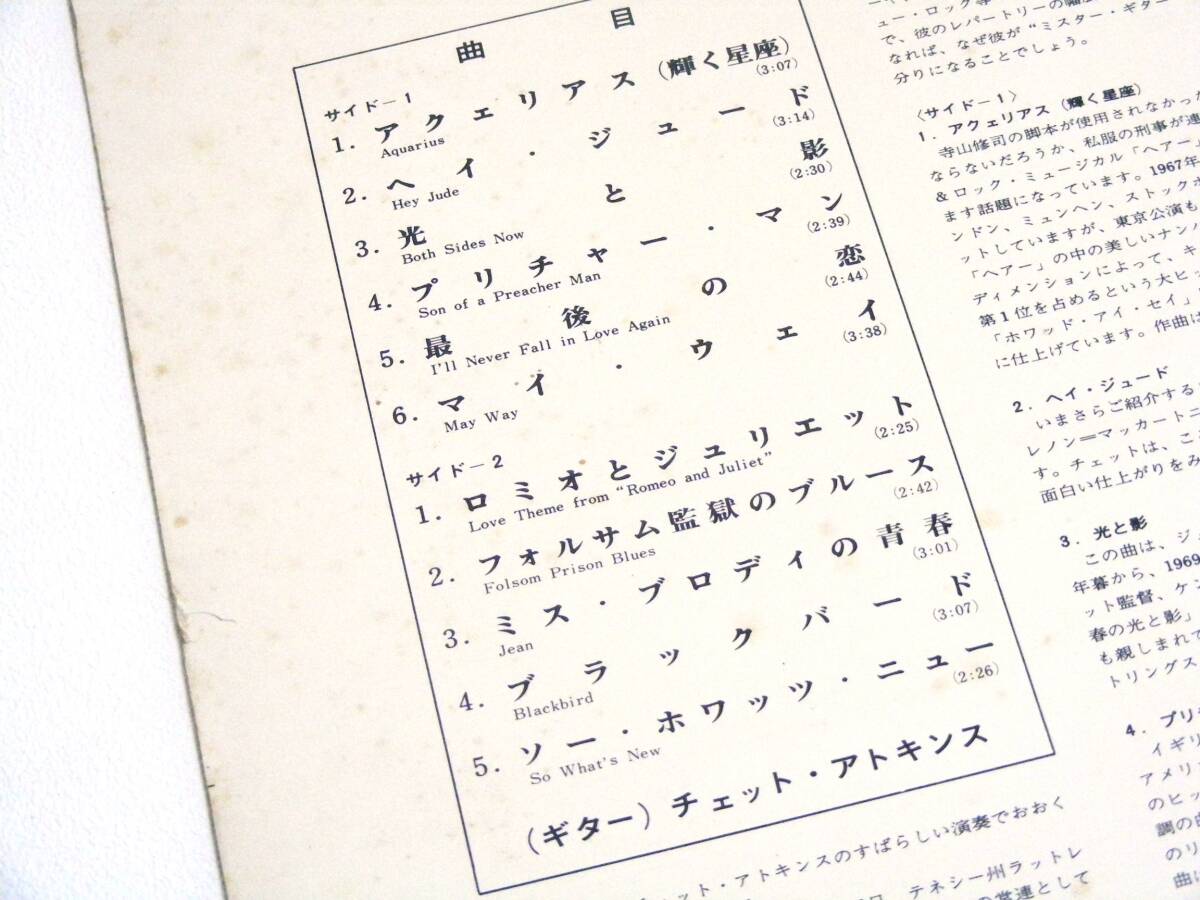 曲目
サイド－1
1. アクェリアス（輝く星座）
Aquarius (3:07)
2. ヘイ・ジュード
Hey Jude (3:14)
3. 光と影
Both Sides Now (2:30)
4. プリチャー・マン
Son of a Preacher Man (2:39)
5. 最後の恋
I'll Never Fall in Love Again (2:44)
6. マイ・ウェイ
May Way (3:38)
サイド－2
1. ロミオとジュリエット
Love Theme from "Romeo and Juliet" (2:25)
2. フォルサム監獄のブルース
Folsom Prison Blues (2:42)
3. ミス・ブロディの青春
Jean (3:01)
4. ブラックバード
Blackbird (3:07)
5. ソー・ホワッツ・ニュー
So What's New (2:26)
（ギター）チェット・アトキンス
アトキンスのすばらしい演奏でおおく
ット・アトキンス
テネシー州ラットレ
の常連として
ュー・ロック等
で、彼のレパートリーの幅
なれば、なぜ彼が“ミスター・ギター
分りになることでしょう。
〈サイド－1〉
1. アクェリアス（輝く星座）
寺山修司の脚本が使用されなかった
ならないだろうか、私服の刑事が連
＆ロック・ミュージカル「ヘアー」
ます話題になっています。1967年
ンドン、ミュンヘン、ストックホ
ットしていますが、東京公演も
「ヘアー」の中の美しいナンバ
ディメンションによって、キ
第1位を占めるという大ヒ
「ホワッド・アイ・セイ」
に仕上げています。作曲は
2. ヘイ・ジュード
いまさらご紹介する
レノン＝マッカートニ
す。チェットは、こ
面白い仕上がりをみ
3. 光と影
この曲は、ジュ
年暮から、1969
ット監督、ケン
春の光と影」
も親しまれて
トリングス
4. プリチ
イギリ
アメリカ
のヒッ
調の曲
のリ
曲に